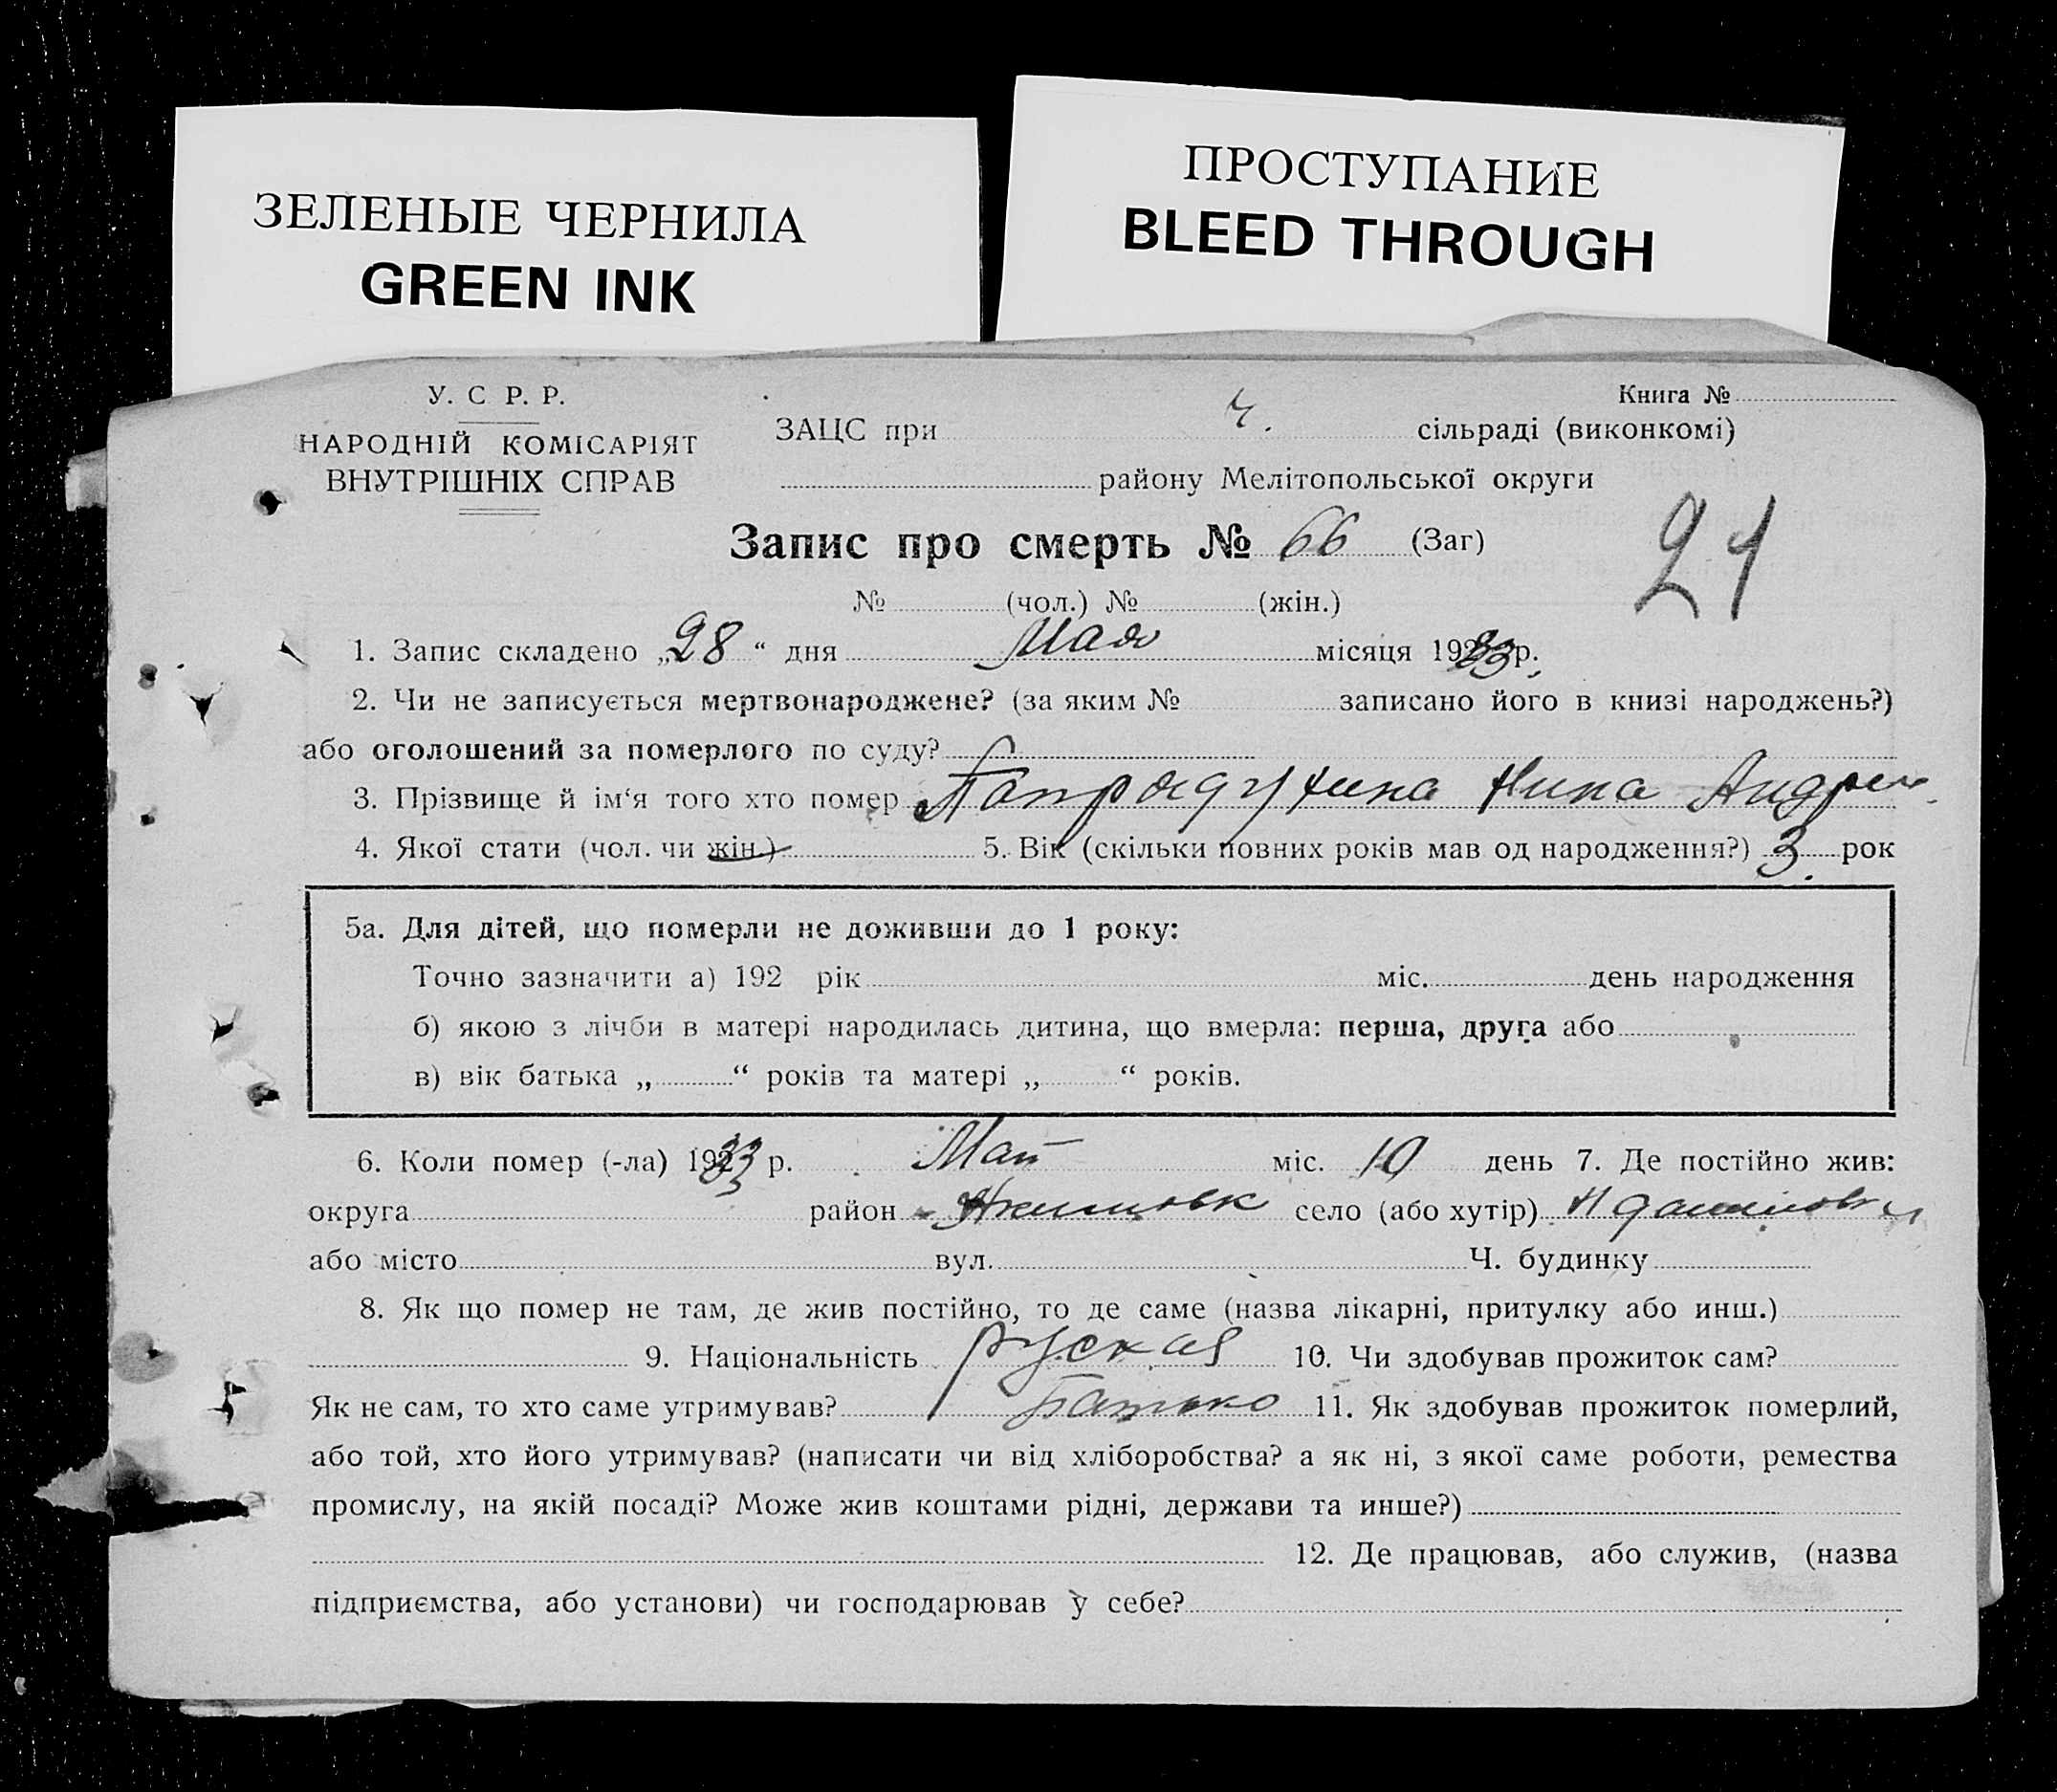 ЗЕЛЕНЫЕ ЧЕРНИЛА
GREEN INK
ПРОСТУПАНИЕ
BLEED THROUGH
У. С Р. Р.
НАРОДНІЙ КОМІСАРІЯТ
ВНУТРІШНІХ СПРАВ
Книга №
ЗАЦС при сільраді (виконкомі)
району Мелітопольської округи
21
Запис про смерть № 66 (Заг)
№ (чол.) № (жін.)
1. Запис складено „28“ дня Мая місяця 1933 р.
2. Чи не записується мертвонароджене? (за яким № записано його в книзі народжень?)
або оголошений за померлого по суду?
3. Прізвище й ім‘я того хто помер Нина
4. Якої стати (чол. чи жін.) 5. Вік (скільки повних років мав од народження?) 3 рок
5а. Для дітей, що померли не доживши до 1 року:
Точно зазначити а) 192 рік міс. день народження
б) якою з лічби в матері народилась дитина, що вмерла: перша, друга або
в) вік батька „ “ років та матері „ “ років.
6. Коли помер (-ла) 1933 р. Май міс. 10 день 7. Де постійно жив:
округа район село (або хутір)
або місто вул. Ч. будинку
8. Як що помер не там, де жив постійно, то де саме (назва лікарні, притулку або инш.)
9. Національність руская 10. Чи здобував прожиток сам?
Як не сам, то хто саме утримував? Батько 11. Як здобував прожиток померлий,
або той, хто його утримував? (написати чи від хліборобства? а як ні, з якої саме роботи, ремества
промислу, на якій посаді? Може жив коштами рідні, держави та инше?)
12. Де працював, або служив, (назва
підприємства, або установи) чи господарював у себе?